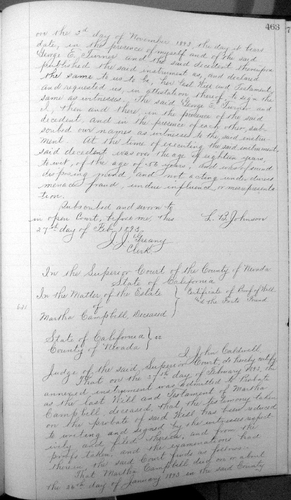 463
on the 2nd day of November 1893, the day it bears
date, in the presence of myself and of the said
George E. Turner and the said decedent thereupon
published the said instrument as, and declared
the same to us to be, her last Will and Testament,
and requested us, in attestation thereof, to sign the
same as witnesses. The said George E. Turner and
I, then and there, in the presence of the said
decedent, and in the presence of each other, sub-
scribed our names as witnesses to the said instru-
ment. At the time of executing the said instrument,
said decedent was over the age of eighteen years,
to wit, of the age of years, was of sound and
disposing mind, and not acting under duress,
menace, fraud, undue influence, or misrepresenta-
tion.
Subscribed and sworn to
in open Court, before me this L. B. Johnson
27th day of Feby 1895.
J. J. Greany
Clerk.
In the Superior Court of the County of Nevada
State of California
In the Matter of the Estate } Certificate of Proof of Will
of } & the Facts Found
Martha Campbell, deceased
State of California } ss
County of Nevada }
I, John Caldwell
Judge of the said Superior Court, do hereby certify
That on the 27th day of February 1895, the
annexed instrument was admitted to Probate
as the last Will and Testament of Martha
Campbell, deceased; that the testimony taken
on the probate of said Will has been reduced
to writing and signed by the witnesses respect-
ively and filed therein, and from the
proofs taken and the examinations had
therein, the said Court finds as follows:
That Martha Campbell died on or about
the 26th day of January 1895 in the said County